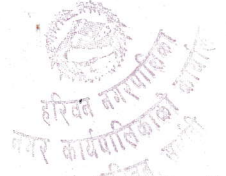 हरिवन नगरपालिका
नगर कार्यपालिकाको कार्यालय